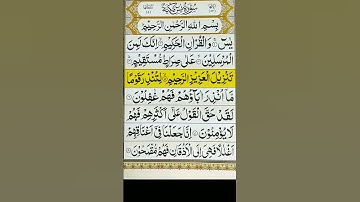 سُوْرَةُ يٰسٓ مَكِّيَّةٌ
بِسْمِ اللّٰهِ الرَّحْمٰنِ الرَّحِيْمِ
يٰسٓ ۚ وَالْقُرْاٰنِ الْحَكِيْمِ ۙ اِنَّكَ لَمِنَ
الْمُرْسَلِيْنَ ۙ عَلٰى صِرَاطٍ مُّسْتَقِيْمٍ ؕ
تَنْزِيْلَ الْعَزِيْزِ الرَّحِيْمِ ۙ لِتُنْذِرَ قَوْمًا
مَّاۤ اُنْذِرَ اٰبَآؤُهُمْ فَهُمْ غٰفِلُوْنَ
لَقَدْ حَقَّ الْقَوْلُ عَلٰۤى اَكْثَرِهِمْ فَهُمْ
لَا يُؤْمِنُوْنَ اِنَّا جَعَلْنَا فِيْۤ اَعْنَاقِهِمْ
اَغْلٰلًا فَهِيَ اِلَى الْاَذْقَانِ فَهُمْ مُّقْمَحُوْنَ